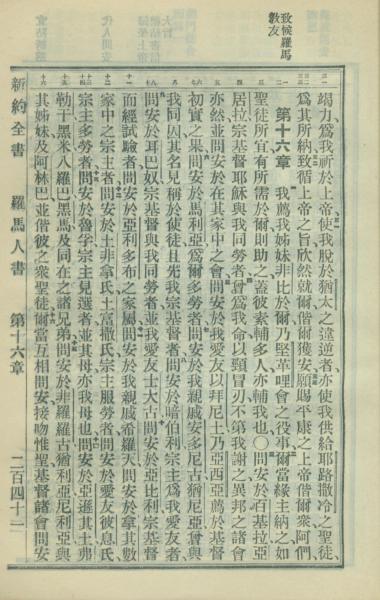 致候羅馬
教友
竭力爲我祈於上帝使我脫於猶太之違逆者亦使我供給耶路撒冷之聖徒
爲其所納致循上帝之旨欣然就爾偕爾獲安願賜平康之上帝偕爾衆阿們
第十六章 我薦我姊妹非比於爾乃堅革哩會之役事爾當緣主納之如
聖徒所宜有所需於爾則助之蓋彼素輔多人亦輔我也〇問安於百基拉亞
居拉宗基督耶穌與我同勞者曾爲我命以頸冒刃不第我謝之異邦之諸會
亦然並問安於在其家中之會問安於我愛友以拜尼土乃亞西亞薦於基督
初實之果問安於馬利亞爲爾多勞者問安於我親戚安多尼古猶尼亞曾與
我同囚其名見稱於使徒且先我宗基督者問安於暗伯利宗主爲我愛友者
問安於耳巴奴宗基督與我同勞者並我愛友士大古問安於亞比利宗基督
而經試驗者問安於亞利多布之家屬問安於我親戚希羅天問安於拿其數
家中之宗主者問安於土非拿氏土富撒氏宗主服勞者問安於愛友彼息氏
宗主多勞者問安於魯孚宗主見選者並其母亦我母也問安於亞遜其土弗
勒干黑米八羅巴黑馬及同在之諸兄弟問安於非羅羅古猶利亞尼利亞與
其姊妹及阿林巴並偕彼之衆聖徒爾當互相問安接吻惟聖基督諸會問安
新約全書 羅馬人書 第十六章 二百四十二